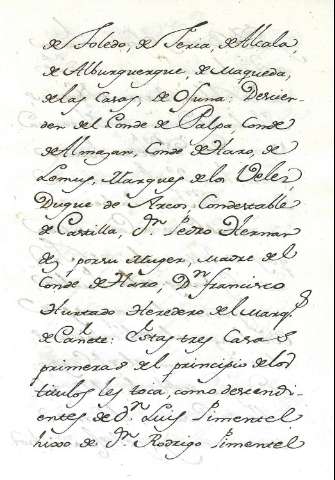 de Toledo, de Feria, de Alcala,
de Alburquerque, de Maqueda,
de las Casas de Osuna: Descien-
den del Conde de Palpa, Conde
de Almazan, Conde de Haro, de
Lemus, Marques de los Velez
Duque de Arcos, Condestable
de Castilla, Dn. Pedro Hernan
dez, por su Muger, Madre del
Conde de Haro, Dn. francisco
Hurtado Heredero del Marqs
de Cañete: Estas tres Casas
primeras del principio de los
titulos les toca, como descendi-
entes de Dn. Luis Pimentel
hixo de Dn. Rodrigo Pimentel